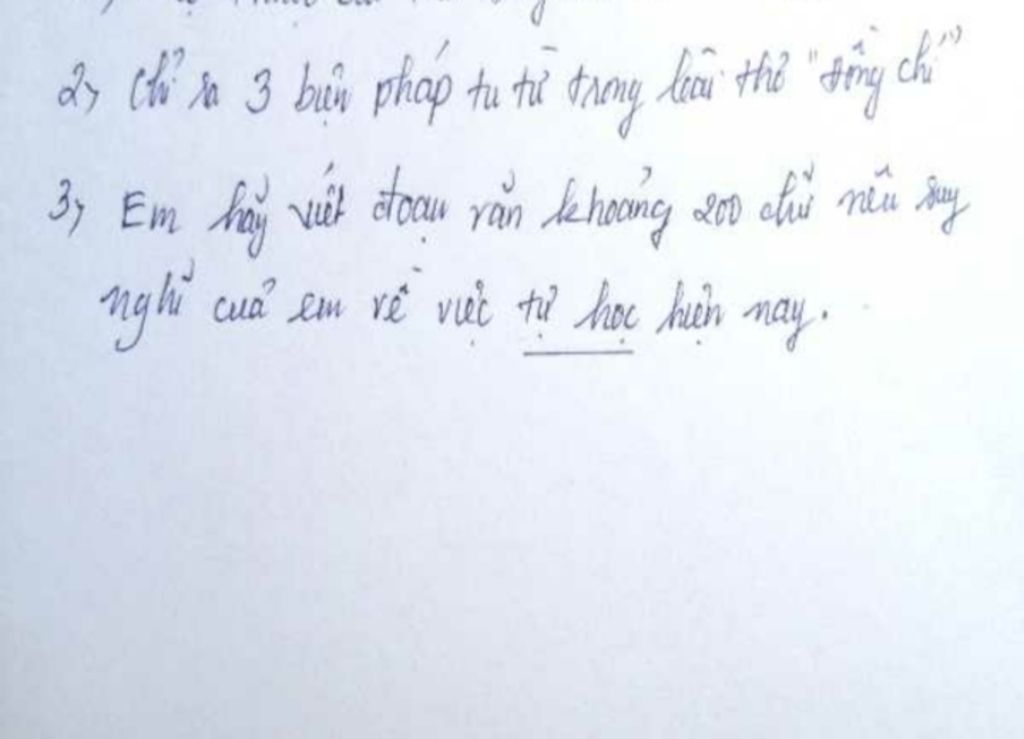 2, Chỉ ra 3 biện pháp tu từ trong bài thơ "đồng chí"
3, Em hãy viết đoạn văn khoảng 200 chữ nêu suy
nghĩ của em về việc tự học hiện nay.